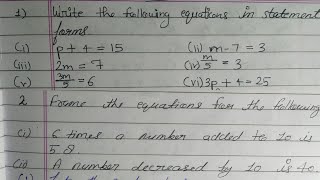 1) Write the following equations in statement
forms
(i) p + 4 = 15 (ii) m - 7 = 3
(iii) 2m = 7 (iv) m/5 = 3
(v) 3m/5 = 6 (vi) 3p + 4 = 25
2. Frome the equations for the following
(i) 6 times a number added to 10 is
58
(ii) A number decreased by 10 is 40.